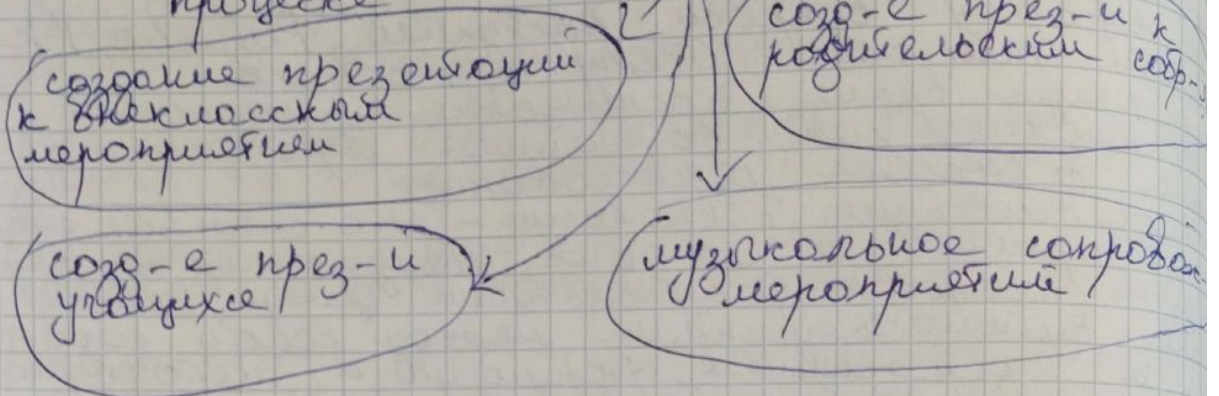 процессе
создание презентаций
к внеклассным
мероприятием
созд-е през-и к
родительским собр-
созд-е през-й
учащихся
музыкальное сопровож-
мероприятий